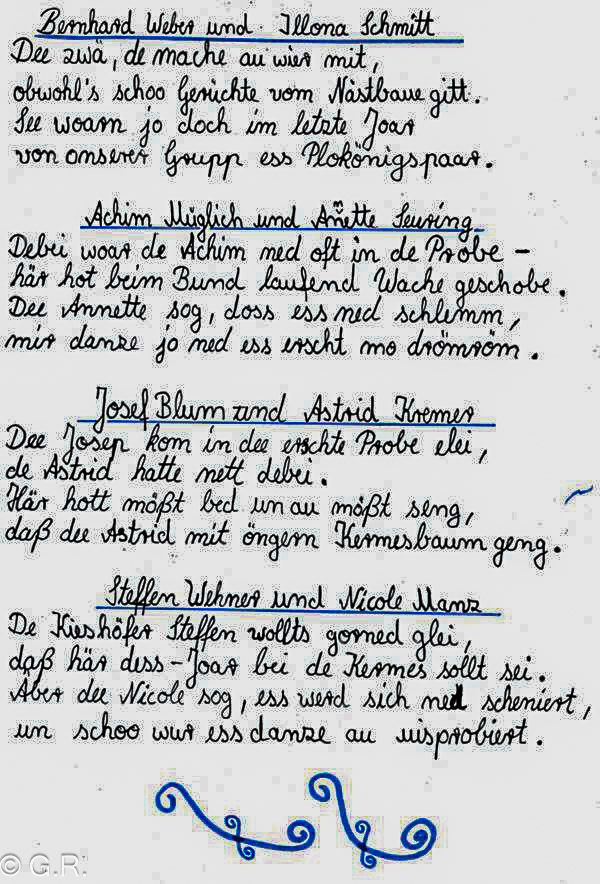 Bernhard Weber und Illona Schmitt
Dee zwä, de mache au wier mit,
obwohl's schoo Gerüchte vom Nästbaue gitt.
See woarn jo doch im letzte Joar
von onserer Grupp ess Plokönigspaar.
Achim Müglich und Annette Seuring
Debei woar de Achim ned oft in de Probe –
här hot beim Bund laufend Wache geschobe.
Dee Annette sog, doss ess ned schlemm,
mir danze jo ned ess erscht mo drömröm.
Josef Blum und Astrid Kremer
Dee Josep kom in dee erschte Probe elei,
de Astrid hatte nett debei.
Här hott mößt bed un au mößt seng,
daß dee Astrid mit öngern Kermesbaum geng.
Steffen Wehner und Nicole Manz
De Kieshöfer Steffen wollts gorned glei,
daß här dess-Joar bei de Kermes sollt sei.
Aber dee Nicole sog, ess werd sich ned scheniert,
un schoo wur ess danze au uisprobiert.
© G.R.